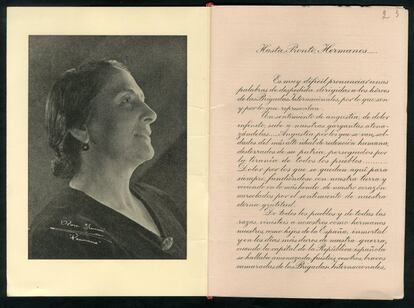 23
Hasta Pronto, Hermanos
Es muy dificil pronunciar unas
palabras de despedida dirigidas a los héroes
de las Brigadas Internacionales, por lo que son
y por lo que representan.
Un sentimiento de angustia, de dolor
infinito, sube a nuestras gargantas atena-
zándolas.... Angustia por los que se van, sol-
dados del más alto ideal de redención humana,
desterrados de su patria, perseguidos por
la tiranía de todos los pueblos..........
Dolor por los que se quedan aquí para
siempre, fundiéndose con nuestra tierra y
viviendo en lo más hondo de nuestro corazón
aureolados por el sentimiento de nuestra
eterna gratitud.
De todos los pueblos y de todas las
razas, vinisteis a nosotros como hermanos
nuestros, como hijos de la España, inmortal
y en los días más duros de nuestra guerra,
cuando la capital de la República española
se hallaba amenazada, fuisteis vosotros, bravos
camaradas de las Brigadas Internacionales,